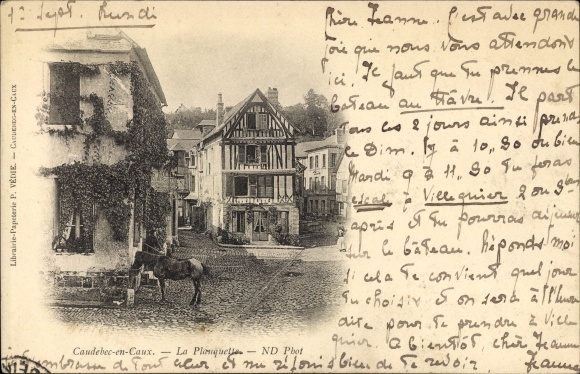 1er Sept. Lundi
Librairie-Papeterie P. VÉDIE. — CAUDEBEC-EN-CAUX
Chère Jeanne. C'est avec grande
joie que nous vous attendons
ici. Il faut que tu prennes le
bateau au Hâvre. Il part
tous les 2 jours ainsi prend
le Dim. 7 à 10h30 ou bien
Mardi 9 à 11h30 tu feras
escale à Villequier 2 ou 3h
après et tu pourras
sur le bâteau. Réponds moi
si cela te convient quel jour
tu choisis et on sera à l'heure
dite pour te prendre à Ville-
quier. A bientôt, cher Jeanne
Caudebec-en-Caux. — La Planquette — ND Phot
de tout cœur et me réjouis bien de te revoir Jeanne